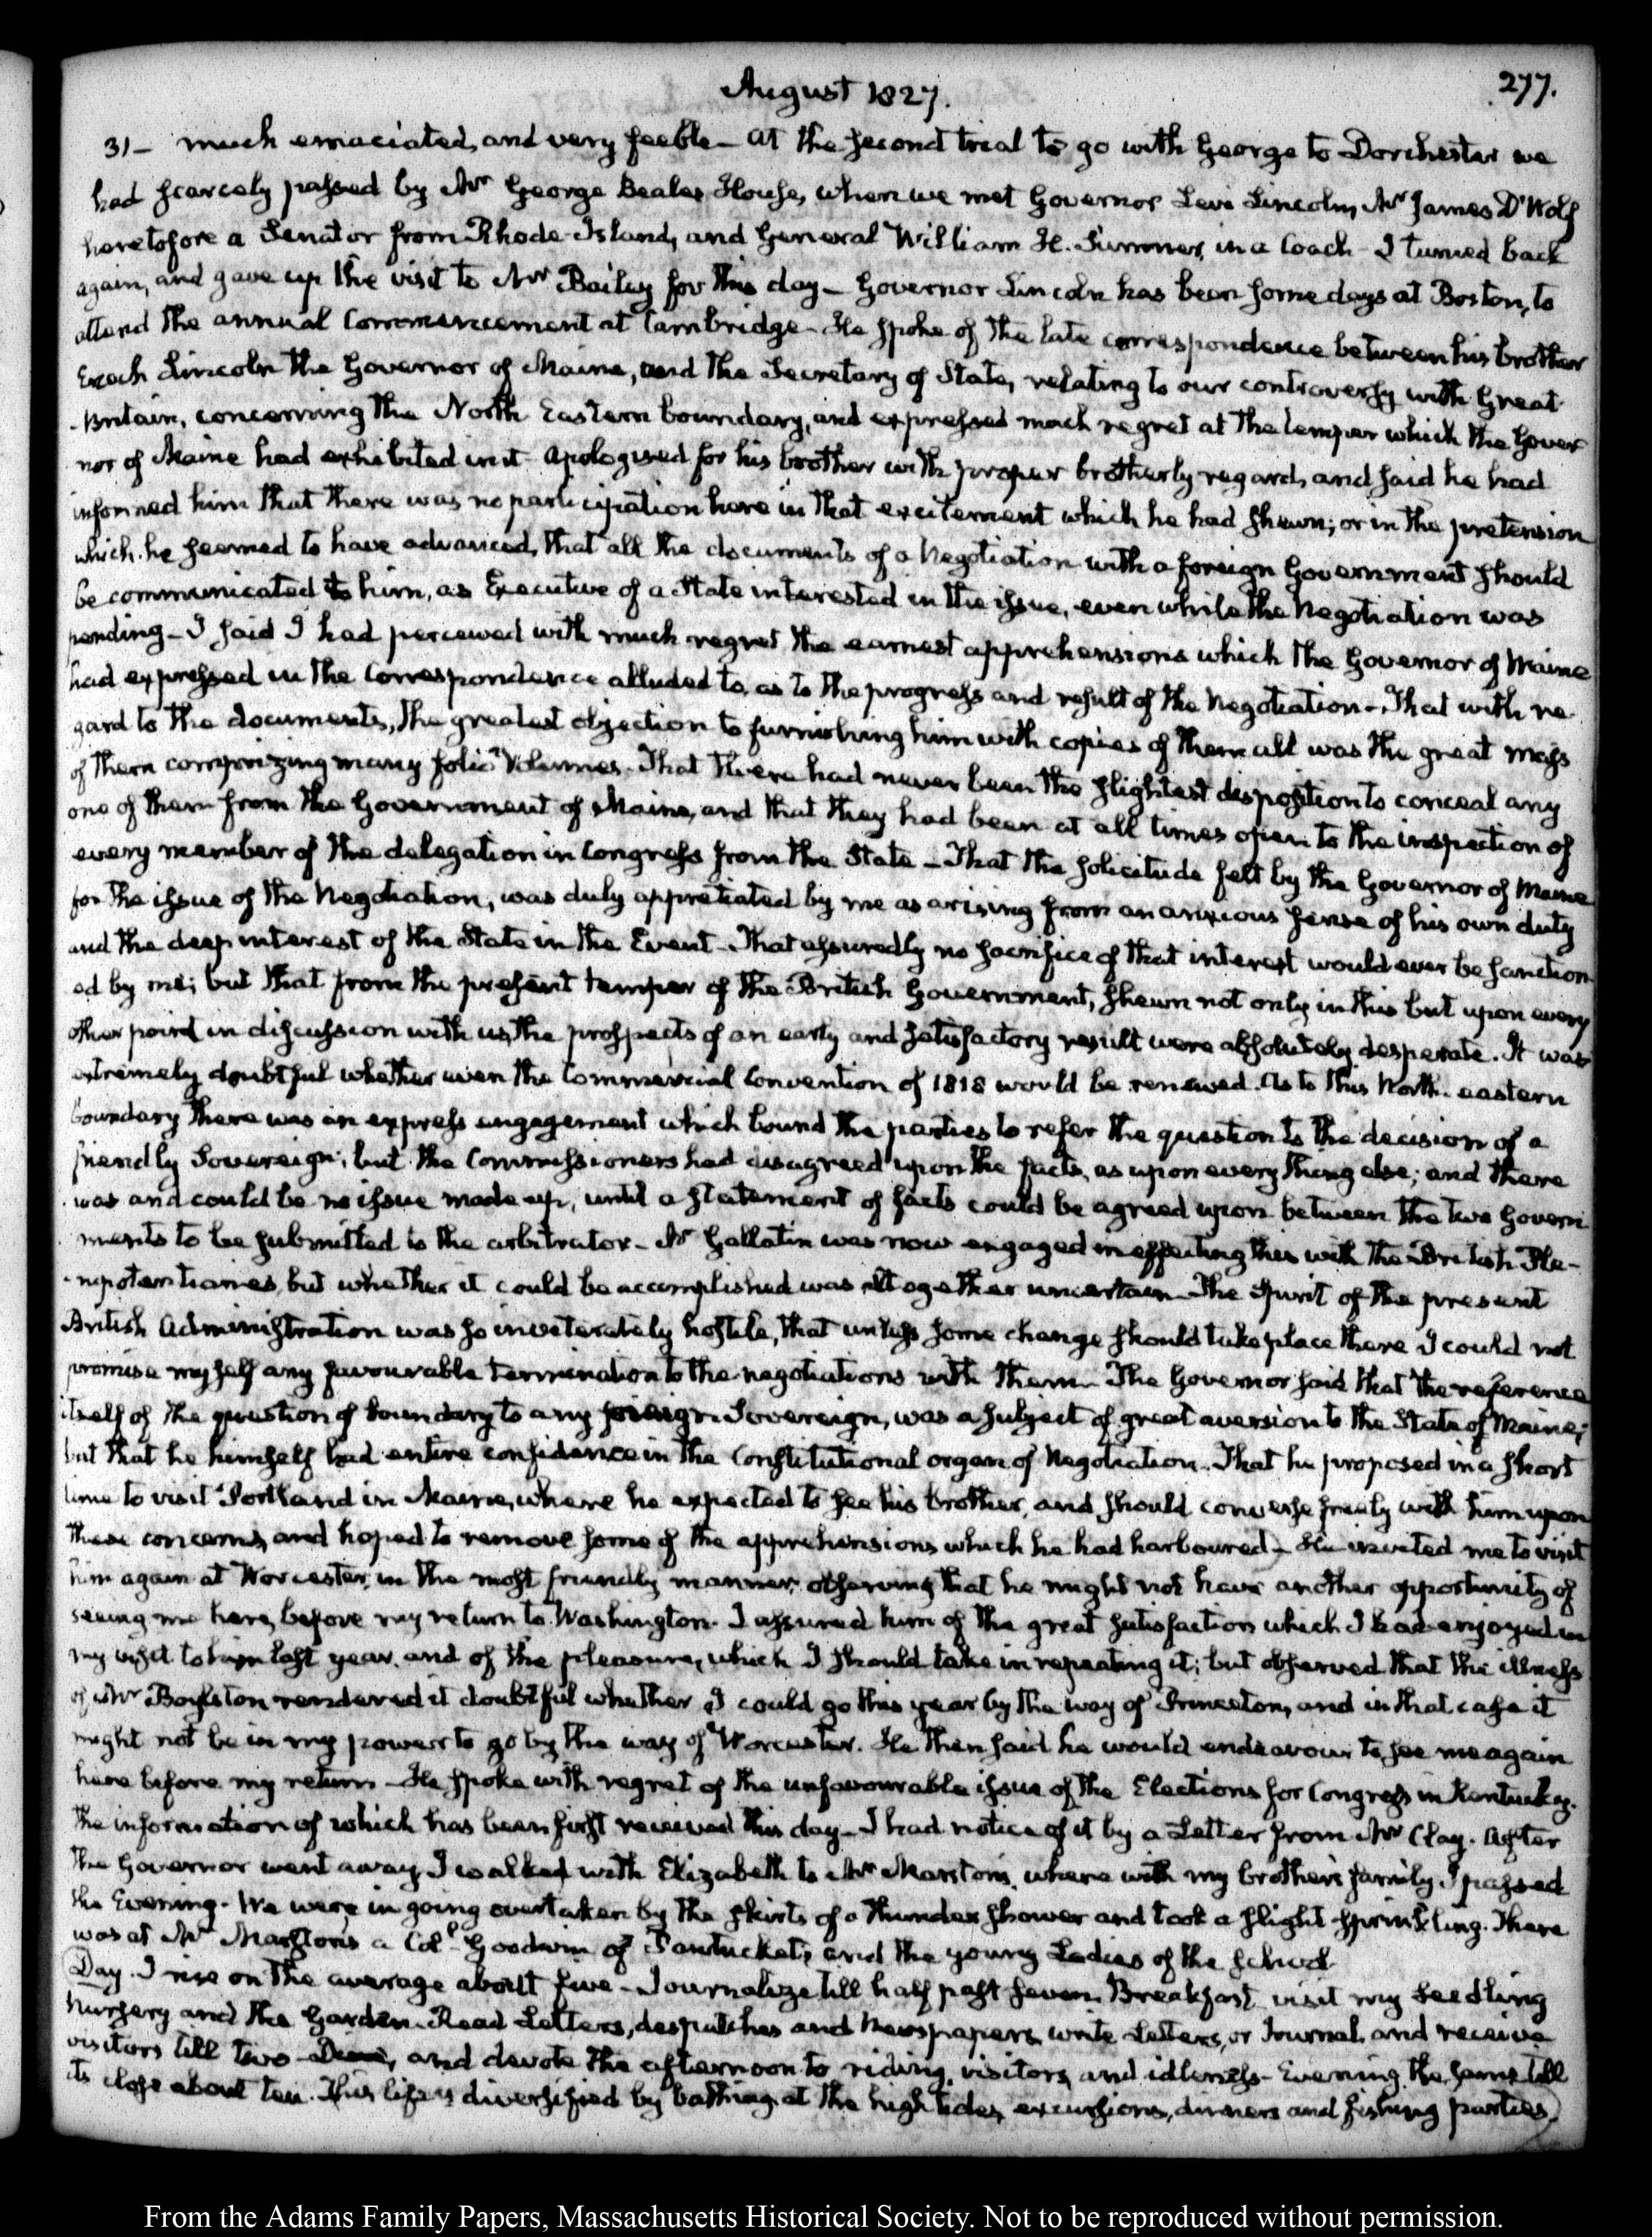 August 1827.
277.
31— much emaciated, and very feeble— at the second trial to go with George to Dorchester we
had scarcely passed by Mr George Beale's House, when we met Governor Levi Lincoln, Mr James D'Wolf
heretofore a Senator from Rhode-Island, and General William H. Sumner, in a Coach— I turned back
again, and gave up the visit to Mr Bailey for this day— Governor Lincoln has been some days at Boston, to
attend the annual Commencement at Cambridge— He spoke of the late correspondence between his brother
Enoch Lincoln the Governor of Maine, and the Secretary of State, relating to our controversy with Great-
-Britain, concerning the North Eastern boundary, and expressed much regret at the temper which the Gover
nor of Maine had exhibited in it— Apologised for his brother with proper brotherly regard, and said he had
informed him that there was no participation here in that excitement which he had shewn; or in the pretension
which he seemed to have advanced, that all the documents of a Negotiation with a foreign Government should
be communicated to him, as Executive of a State interested in the issue, even while the Negotiation was
pending— I said I had perceived with much regret the earnest apprehensions which the Governor of Maine
had expressed in the Correspondence alluded to, as to the progress and result of the Negotiation— That with re-
gard to the documents, the greatest objection to furnishing him with copies of them all was the great mass
of them comprizing many folio Volumes. That there had never been the slightest disposition to conceal any
one of them from the Government of Maine, and that they had been at all times open to the inspection of
every member of the delegation in Congress from the State— That the solicitude felt by the Governor of Maine
for the issue of the Negotiation, was duly appretiated by me as arising from an anxious sense of his own duty
and the deep interest of the State in the Event— That assuredly no sacrifice of that interest would ever be sanction-
ed by me; but that from the present temper of the British Government, shewn not only in this but upon every
other point in discussion with us, the prospects of an early and satisfactory result were absolutely desperate. It was
extremely doubtful whether even the Commercial Convention of 1818 would be renewed. As to this North-eastern
boundary there was an express engagement which bound the parties to refer the question to the decision of a
friendly Sovereign; but the Commissioners had disagreed upon the facts, as upon every thing else; and there
was and could be no issue made up, until a statement of facts could be agreed upon between the two Govern
ments to be submitted to the arbitrator— Mr Gallatin was now engaged in effecting this with the British Ple-
-nipotentiaries, but whether it could be accomplished was altogether uncertain— The Spirit of the present
British Administration was so inveterately hostile, that unless some change should take place there I could not
promise myself any favourable termination to the negotiations with them— The Governor said that the reference
itself of the question of boundary to any foreign Sovereign, was a subject of great aversion to the State of Maine;
but that he himself had entire confidence in the Constitutional organ of Negotiation. That he proposed in a short
time to visit Portland in Maine, where he expected to see his brother, and should converse freely with him upon
these concerns, and hoped to remove some of the apprehensions which he had harboured— He invited me to visit
him again at Worcester, in the most friendly manner, observing that he might not have another opportunity of
seeing me here, before my return to Washington. I assured him of the great satisfaction which I had enjoyed in
my visit to him last year, and of the pleasure, which I should take in repeating it; but observed that the illness
of Mr Boylston rendered it doubtful whether I could go this year by the way of Princeton, and in that case it
might not be in my power to go by the way of Worcester. He then said he would endeavour to see me again
here before my return— He spoke with regret of the unfavourable issue of the Elections for Congress in Kentucky.
the information of which has been first received this day— I had notice of it by a Letter from Mr Clay. After
the Governor went away I walked with Elizabeth to Mr Marston's, where with my brother's family I passed
the Evening. We were in going overtaken by the skirts of a Thunder shower and took a slight sprinkling. There
was at Mr Marston's a Coll. Goodwin of Pawtucket, and the young Ladies of the school.
Day. I rise on the average about five— Journalize till half past seven. Breakfast, visit my seedling
Nursery and the Garden. Read Letters, despatches and Newspapers, write Letters, or Journal, and receive
visitors till two— Dine, and devote the afternoon to riding, visitors, and idleness— Evening the same till
its close about ten. This life is diversified by bathing at the high tides, excursions, dinners and fishing parties.
From the Adams Family Papers, Massachusetts Historical Society. Not to be reproduced without permission.